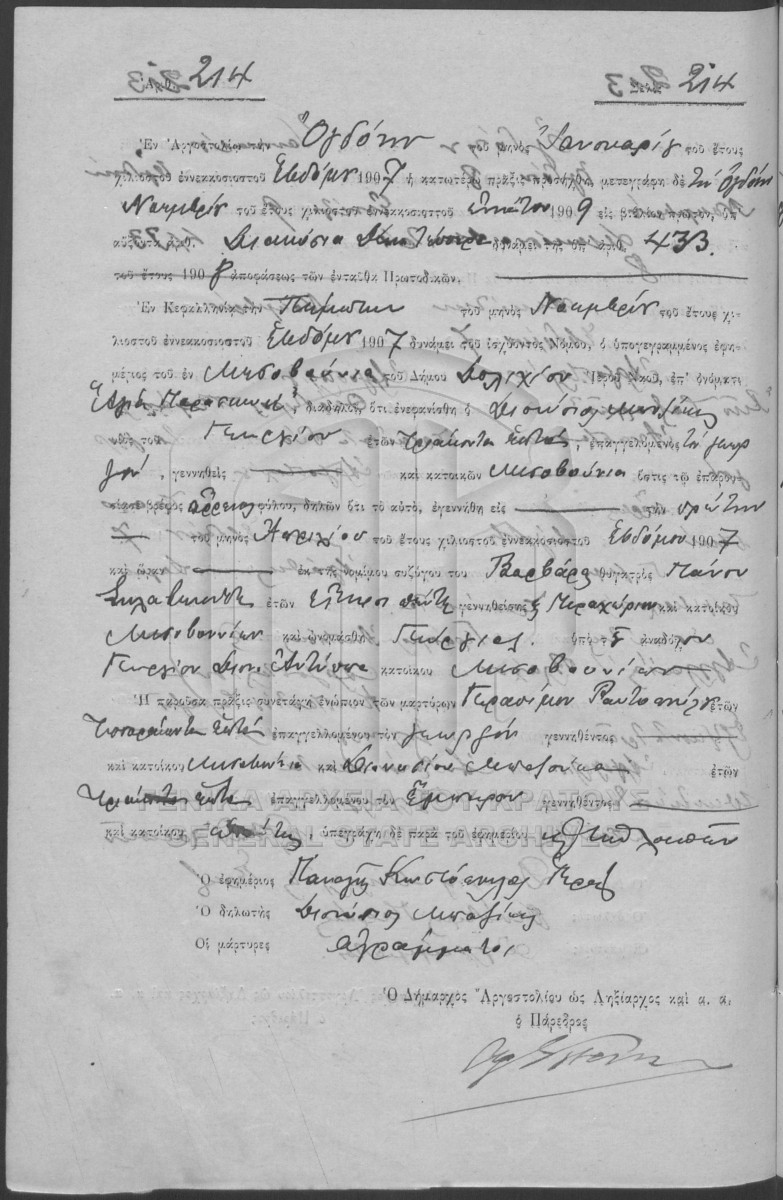 214
214
Ἐν Ἀργοστολίῳ τὴν Ὀγδόην τοῦ μηνὸς Ἰανουαρίῳ τοῦ ἔτους
χιλιοστοῦ ἐννεακοσιοστοῦ Ἑβδόμου 1907 ἡ κατωτέρω πρᾶξις προσήχθη, μετεγράφη δὲ τῇ ὀγδόῃ
Νοεμβρίου τοῦ ἔτους χιλιοστοῦ ἐννεακοσιοστοῦ ἐννάτου 1909 εἰς βιβλίον
αὔξοντα ἀριθ. Διακόσια δέκα τέσσερα δυνάμει τῆς ὑπ' ἀριθ. 433.
τοῦ ἔτους 1908 ἀποφάσεως τῶν ἐνταῦθα Πρωτοδικῶν.
Ἐν Κεφαλληνίᾳ τὴν Πέμπτην τοῦ μηνὸς Νοεμβρίου τοῦ ἔτους χι-
λιοστοῦ ἐννεακοσιοστοῦ Ἑβδόμου 1907 δυνάμει τοῦ ἰσχύοντος Νόμου, ὁ ὑπογεγραμμένος ἐφη-
μέριος τοῦ ἐν Μεσοβούνια τοῦ Δήμου Δολιχίου Ἱεροῦ Ναοῦ, ἐπ' ὀνόματι
Ἁγία Παρασκευὴ, διαδηλῶ, ὅτι ἐνεφανίσθη ὁ Διονύσιος
υἱὸς τοῦ Γεωργίου ἐτῶν τριάκοντα ἑπτά, ἐπαγγελόμενος τὸν γεωρ
γόν, γεννηθεὶς καὶ κατοικῶν Μεσοβούνια ὅστις τῷ ἐπαρου-
σίασε βρέφος ἄρρενος φύλου, δηλῶν ὅτι τὸ αὐτὸ, ἐγεννήθη εἰς τὴν πρώτην
τοῦ μηνὸς Ἀπριλίου τοῦ ἔτους χιλιοστοῦ ἐννεακοσιοστοῦ Ἑβδόμου 1907
καὶ ὥραν ἐκ τῆς νομίμου συζύγου του Βαρβάρας θυγατρὸς Πάνου
ἐτῶν εἴκοσι πέντε γεννηθείσης κατοίκου
Μεσοβουνίων καὶ ὠνομάσθη Γεώργιος. ὑπὸ τοῦ ἀναδόχου
Γεωργίου Διον. Ἀντύπα κατοίκου Μεσοβουνίων
Ἡ παροῦσα πρᾶξις συνετάχθη ἐνώπιον τῶν μαρτύρων Γερασίμου ἐτῶν
τεσσαράκοντα ἑπτά ἐπαγγελλομένου τὸν γεωργόν γεννηθέντος
καὶ κατοίκου Μεσοβούνια καὶ Διονυσίου ἐτῶν
ἐπαγγελλομένου τὸν Ἔμπορον γεννηθέντος
καὶ κατοίκου, ὑπεγράφη δὲ παρὰ τοῦ ἐφημερίου
ΓΕΝΙΚΑ ΑΡΧΕΙΑ ΤΟΥ ΚΡΑΤΟΥΣ
GENERAL STATE ARCHIVES
Ὁ ἐφημέριος Παναγῆς
Ὁ δηλωτὴς Διονύσιος
Οἱ μάρτυρες ἀγράμματοι
Ὁ Δήμαρχος Ἀργοστολίου ὡς Ληξίαρχος καὶ α. α.
ὁ Πάρεδρος